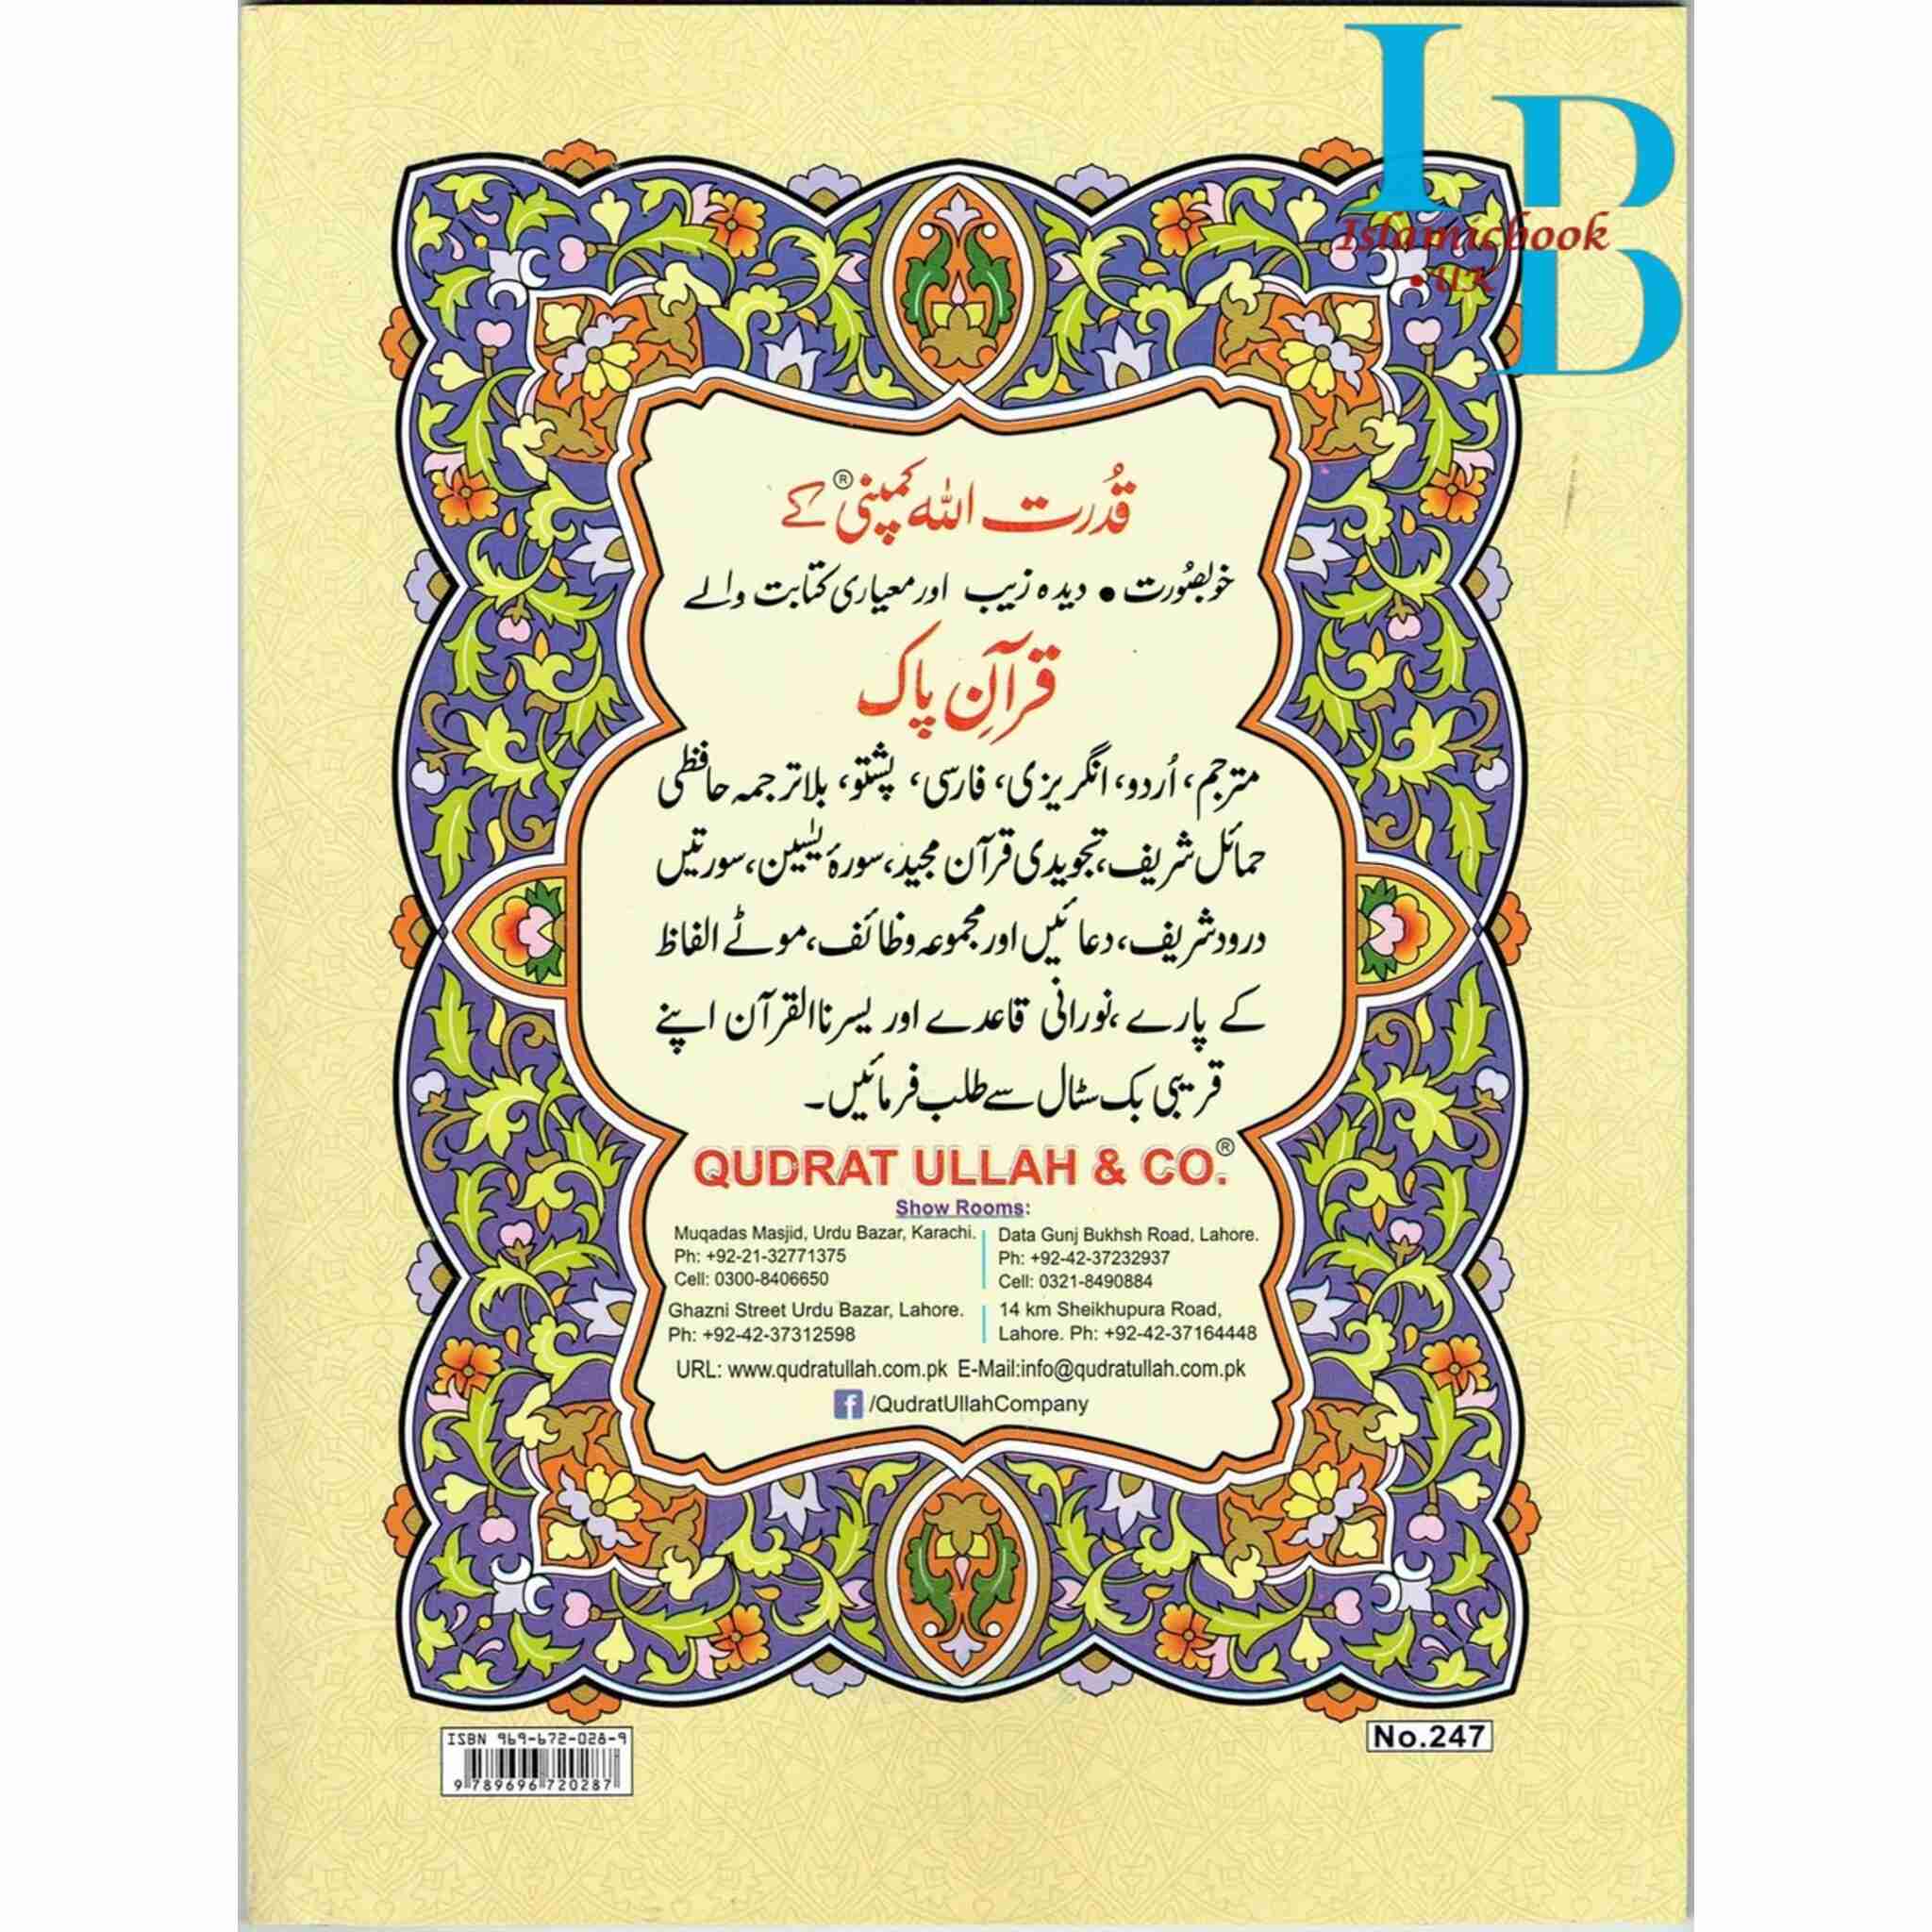 Islamicbook
.UK
قُدرت اللہ کمپنی® کے
خوبصُورت • دیدہ زیب اور معیاری کتابت والے
قرآنِ پاک
مترجم، اُردو، انگریزی، فارسی، پشتو، بلاترجمہ حافظی
حمائل شریف، تجویدی قرآن مجید، سورۂ یٰسین، سورتیں
درود شریف، دعائیں اور مجموعہ وظائف، موٹے الفاظ
کے پارے، نورانی قاعدے اور یسرنا القرآن اپنے
قریبی بک سٹال سے طلب فرمائیں۔
QUDRAT ULLAH & CO.®
Show Rooms:
Muqadas Masjid, Urdu Bazar, Karachi.
Ph: +92-21-32771375
Cell: 0300-8406650
Data Gunj Bukhsh Road, Lahore.
Ph: +92-42-37232937
Cell: 0321-8490884
Ghazni Street Urdu Bazar, Lahore.
Ph: +92-42-37312598
14 km Sheikhupura Road,
Lahore. Ph: +92-42-37164448
URL: www.qudratullah.com.pk E-Mail:info@qudratullah.com.pk
f /QudratUllahCompany
ISBN 969-672-028-9
9 789696 720287
No.247